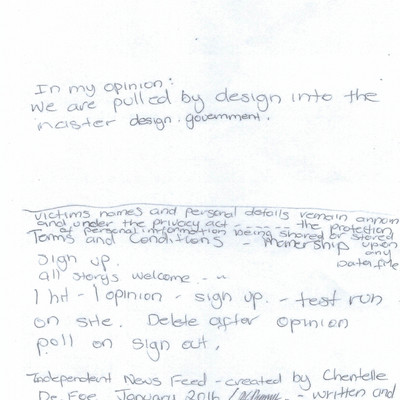 In my opinion:
we are pulled by design into the
master design. government.
victims names and personal details remain annom
and under the privacy act - - - - - - the protection
of personal information being shared or stored
Terms and Conditions - Membership upon
any
sign up. Data file
all storys welcome. - --
1 hit - 1 opinion - sign up. - test run
on site. Delete after opinion
poll on sign out.
Independent News Feed - created by Chentelle
De Foe January 2016 - written and